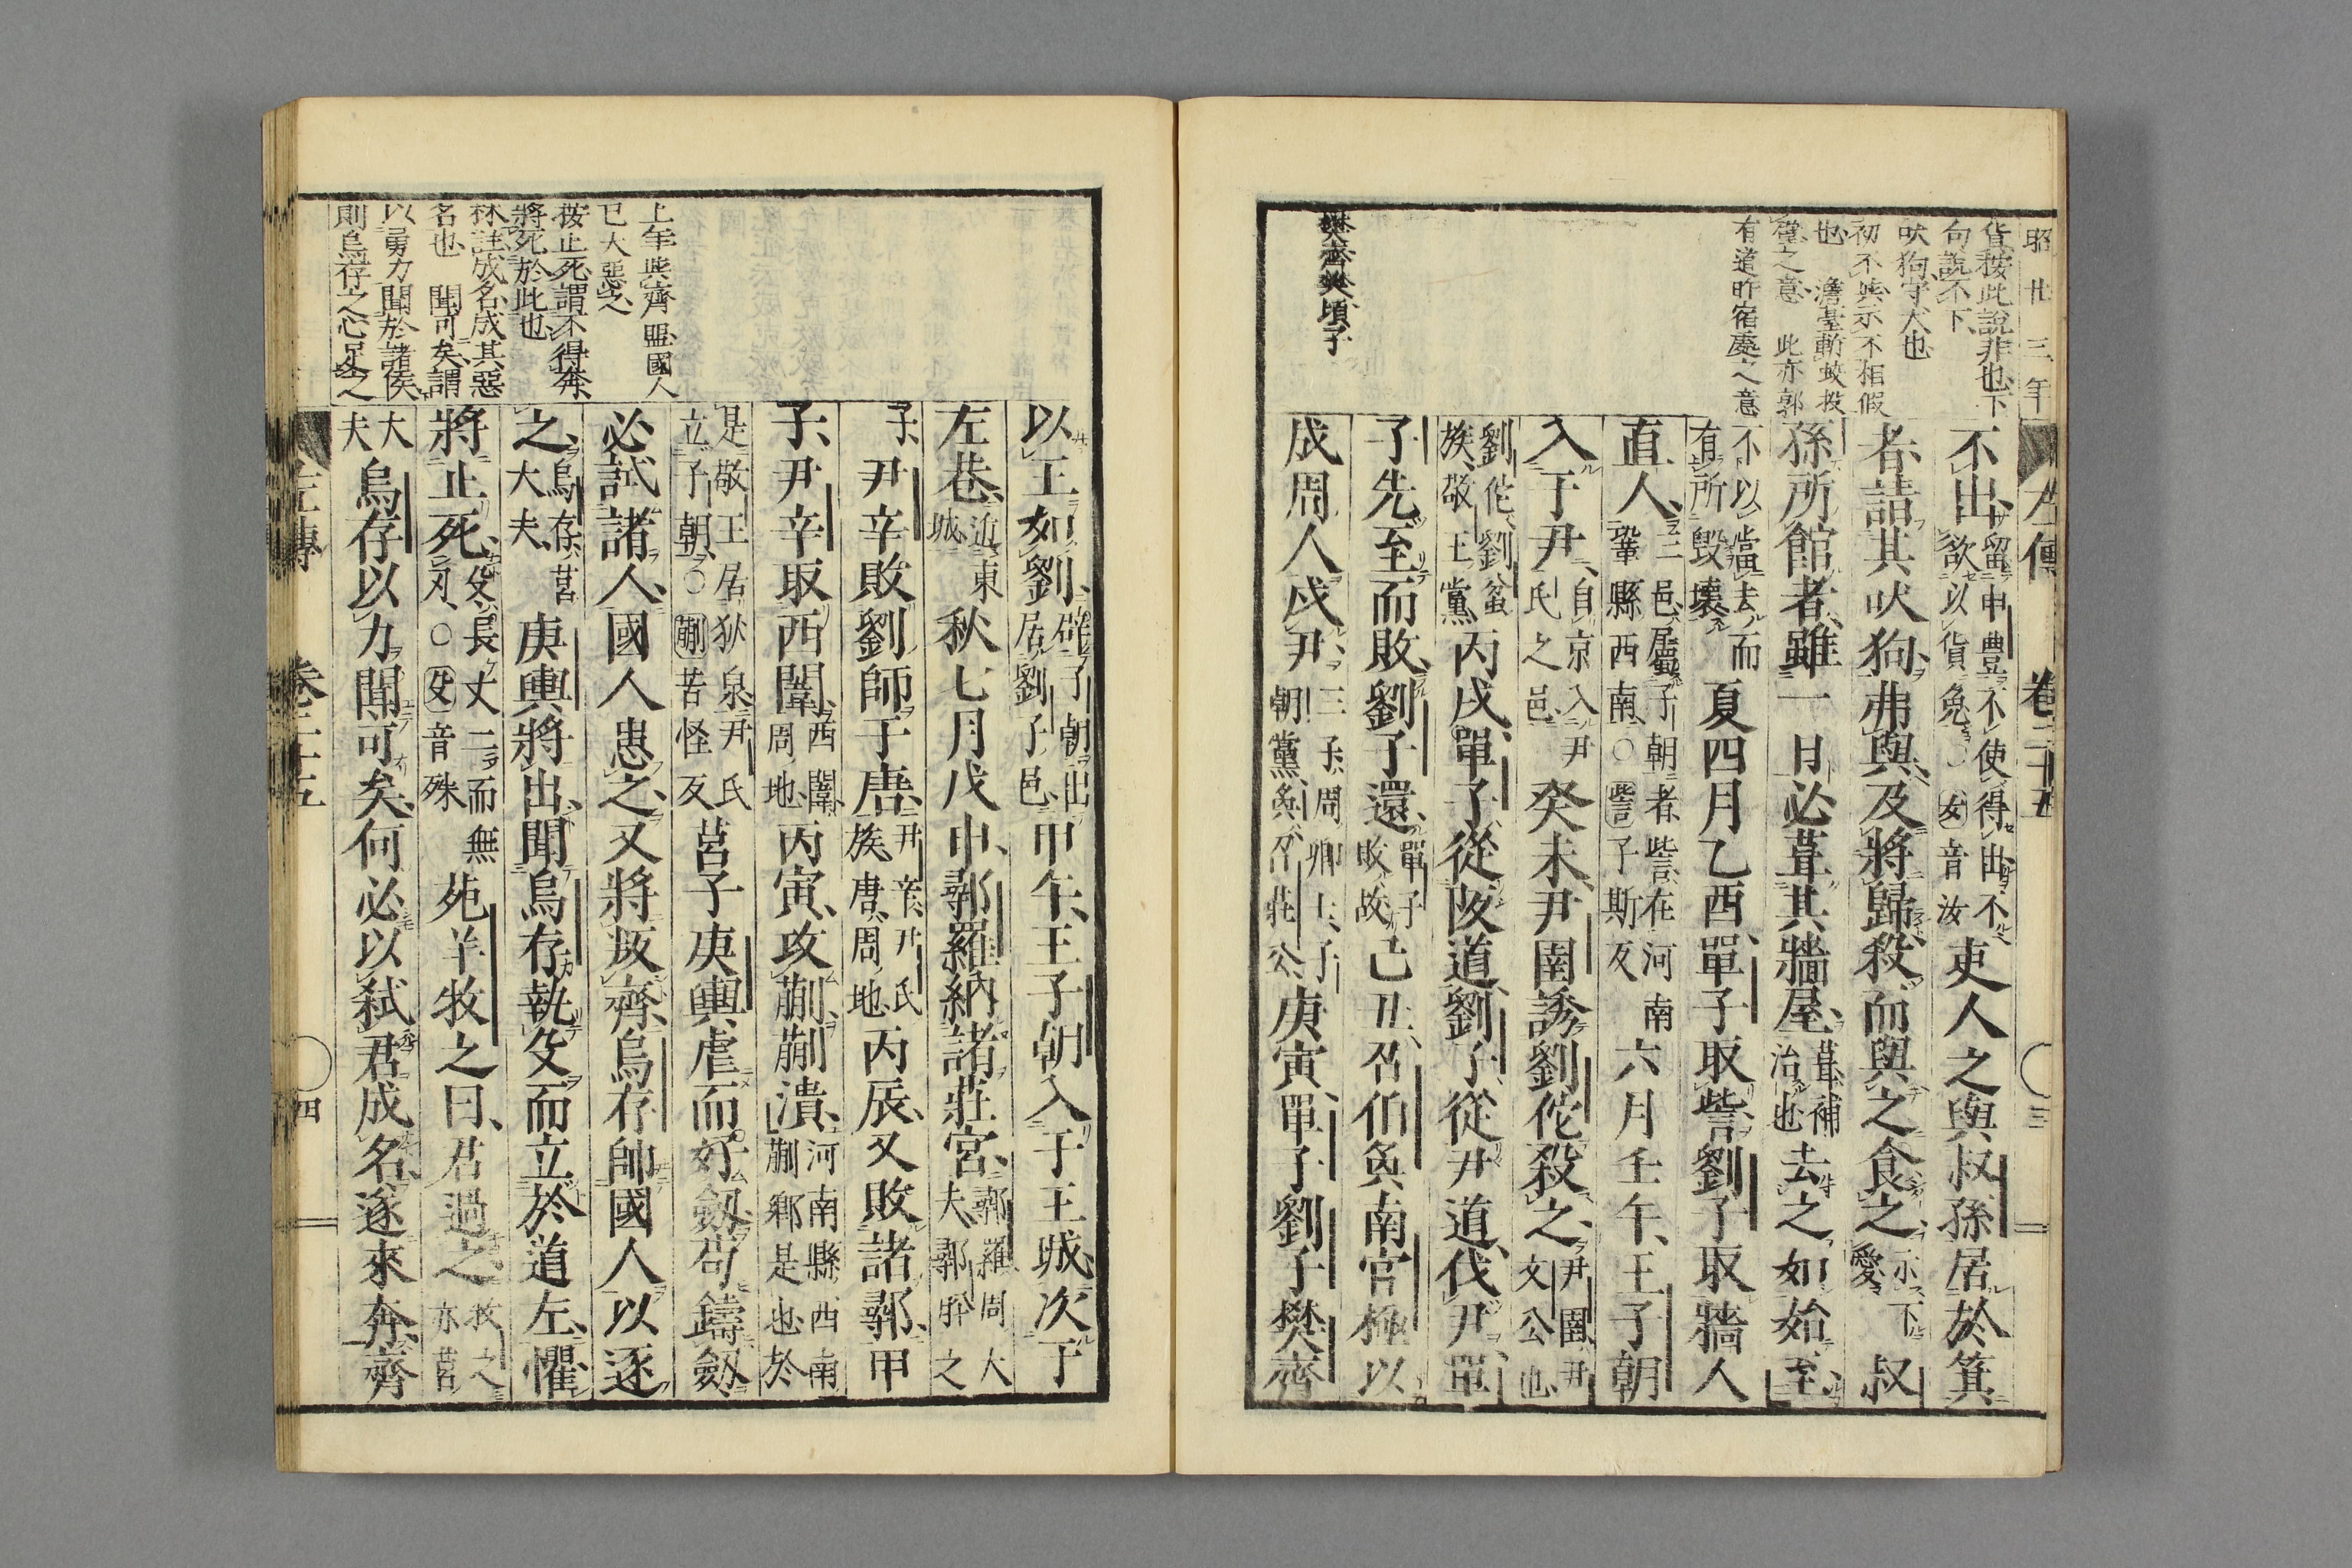 昭廿三年
左傳 卷二十五 三
貨按此說非也下
句說不下
吠狗守犬也
初不與示不相假
也 澹臺斬蛟投
璧之意 此亦郭
有道昨宿處之意
樊齊樊頃子
不出留申豐不使得出不欲以貨免○女音汝吏人之與叔孫居於箕
者請其吠狗弗與及將歸殺而與之食之示不愛下叔
孫所館者雖一日必葺其牆屋葺補治也去之如始至
不以當去而有所毀壞夏四月乙酉單子取訾劉子取牆人
直人三邑屬子朝者訾在河南鞏縣西南○訾子斯反六月壬午王子朝
入于尹自京入尹氏之邑癸未尹圉誘劉佗殺之尹圉尹文公也
劉佗劉蚠族敬王黨丙戌單子從阪道劉子從尹道伐尹單
子先至而敗劉子還單子敗故己丑召伯奐南宮極以
成周人戍尹三子周卿士子朝黨奐召莊公庚寅單子劉子樊齊
上年與齊盟國人
已大惡之
按止死謂不得奔
將死於此也
林註成名成其惡
名也 聞可矣謂
以勇力聞於諸侯
則烏存之心足之
以王如劉辟子朝出居劉子邑甲午王子朝入于王城次于
左巷近東城秋七月戊申鄩羅納諸莊宮鄩羅周大夫鄩肸之
子尹辛敗劉師于唐尹辛尹氏族唐周地丙辰又敗諸鄩甲
子尹辛取西闈西闈周地丙寅攻蒯蒯潰河南縣西南蒯鄉是也於
是敬王居狄泉尹氏立子朝○蒯苦怪反莒子庚輿虐而好劔苟鑄劔
必試諸人國人患之又將叛齊烏存帥國人以逐
之烏存莒大夫庚輿將出聞烏存執殳而立於道左懼
將止死殳長丈二而無刃○殳音殊苑羊牧之曰君過之牧之亦莒
大夫烏存以力聞可矣何必以弒君成名遂來奔齊
左傳 卷二十五 四